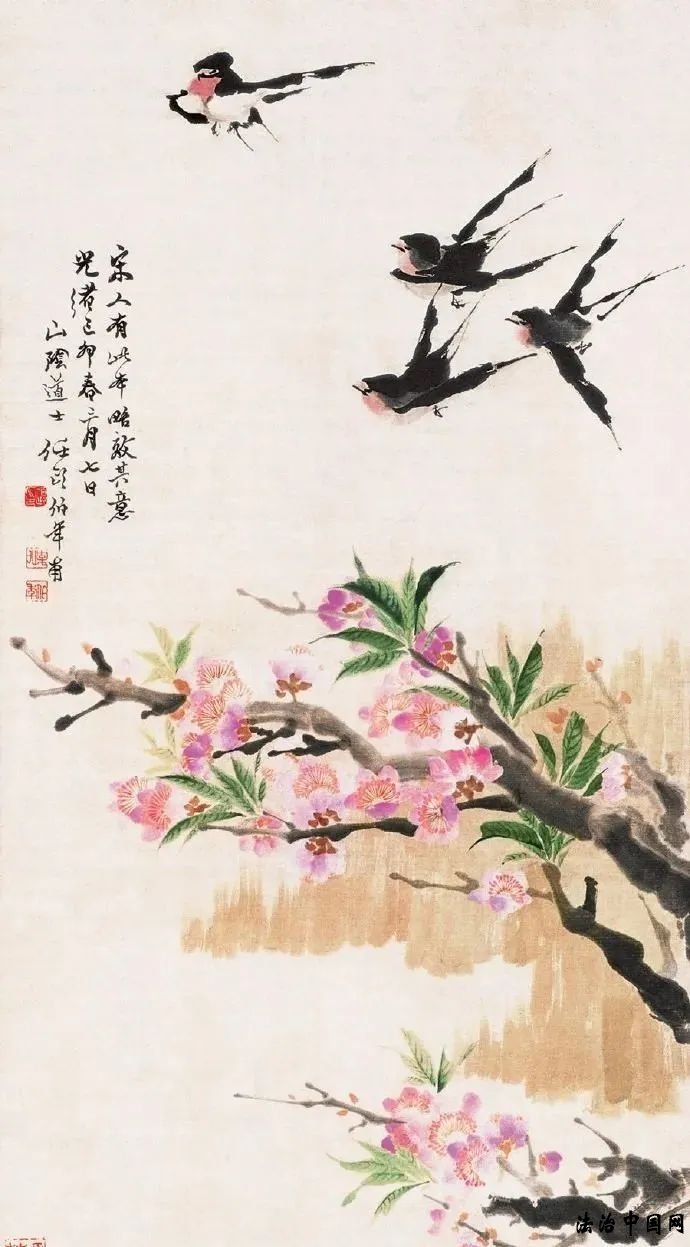 宋人有此本略效其意
光绪己卯春三月七日
山陰道士任頤伯年甫
法治中国网